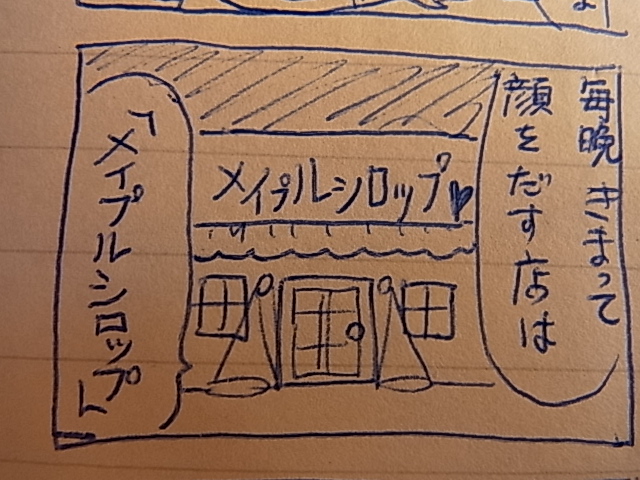 毎晩 きまって
顔をだす店は
メイプルシロップ♥
「メイプルシロップ」